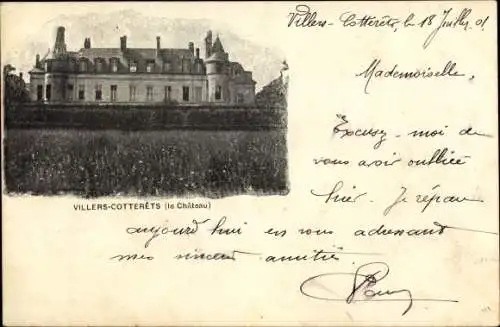 Villers-Cotterêts, le 18 Juillet 01
Mademoiselle,
Excusez-moi de
vous avoir oubliée
hier. Je répare
VILLERS-COTTERÊTS (le Château)
aujourd'hui en vous adressant
mes sincères amitiés